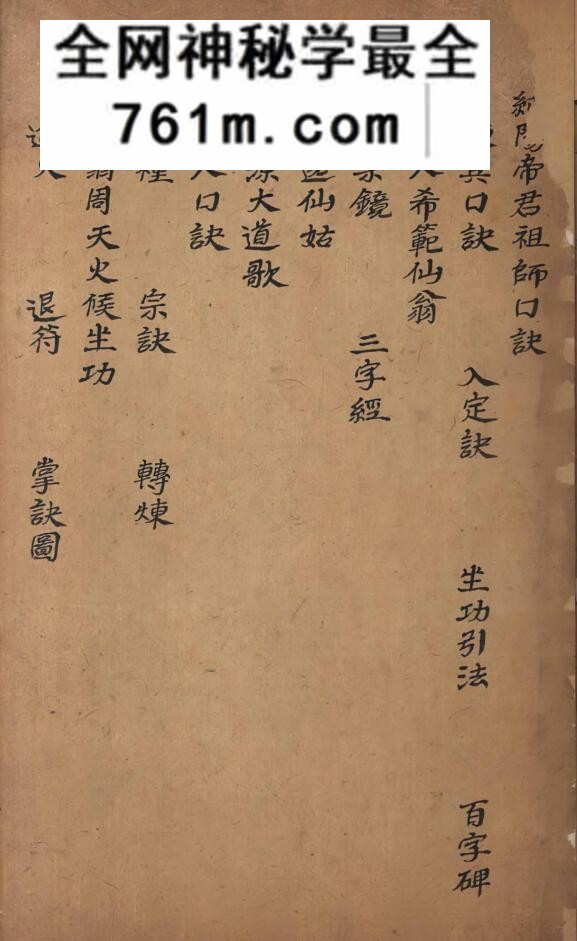 全网神秘学最全
761m.com
帝君祖師口訣
口訣 入定訣 坐功引法 百字碑
希範仙翁
鏡 三字經
仙姑
大道歌
口訣
宗訣 轉煉
周天火候坐功
退符 掌訣圖